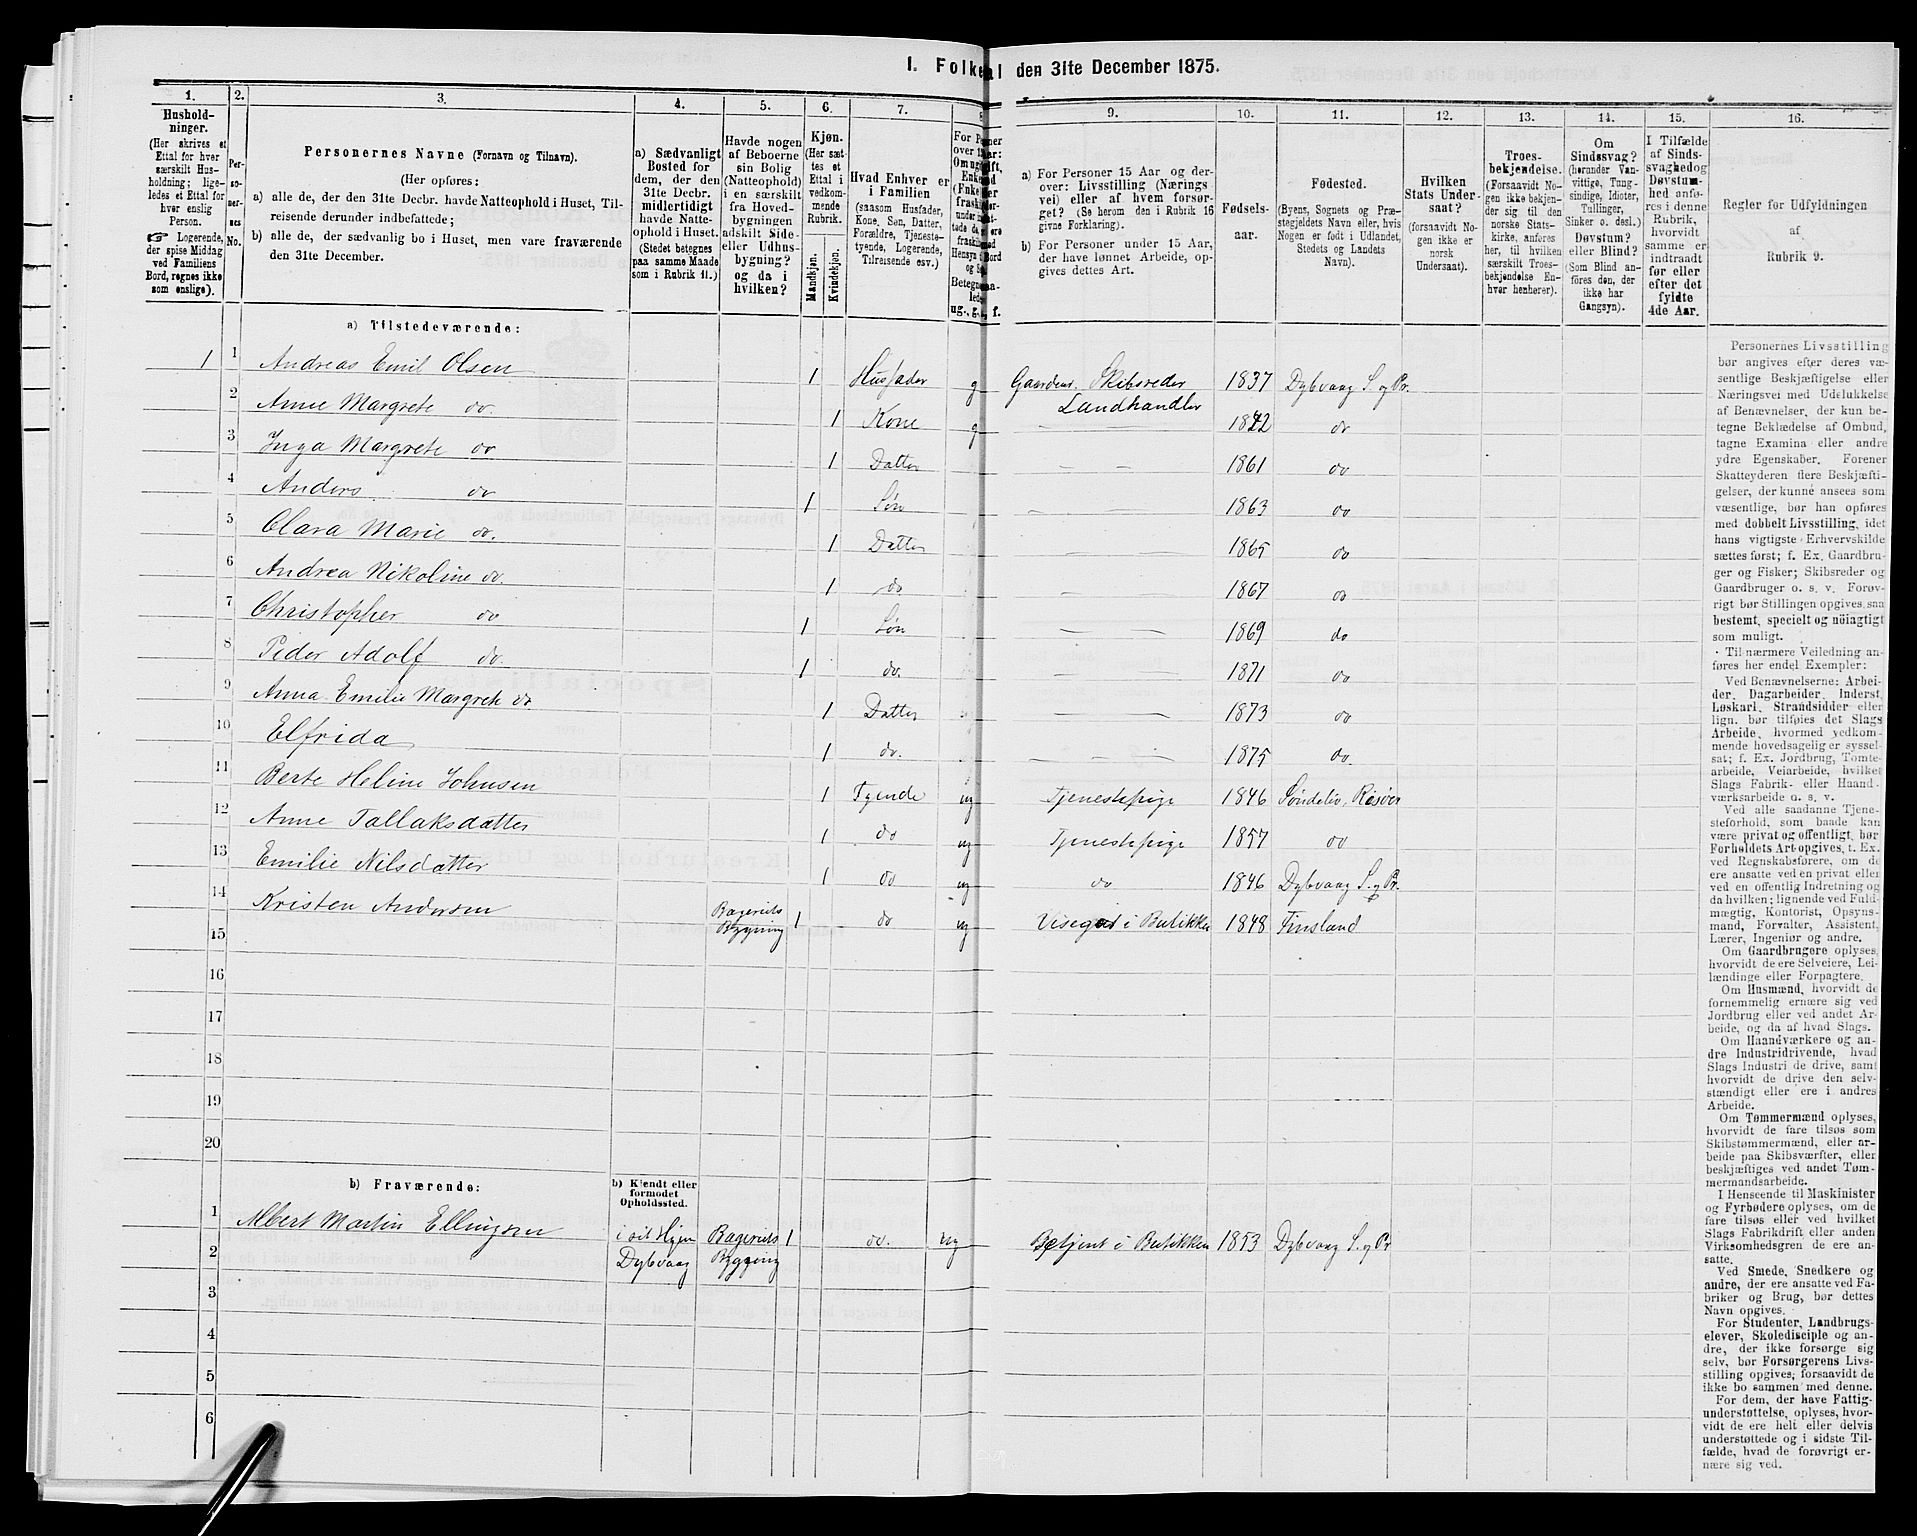 I. Folketal den 31te December 1875.
1. 2. 3. 4. 5. 6. 7. 8. 9. 10. 11. 12. 13. 14. 15. 16.
Hushold-
ninger.
(Her skrives et
Ettal for hver
særskilt Hus-
holdning; lige-
ledes et Ettal for
hver enslig
Person.
☞ Logerende,
der spise Middag
ved Familiens
Bord, regnes ikke
som enslige).
Per-
so-
ner-
nes
No.
Personernes Navne (Fornavn og Tilnavn).
(Her opføres:
a) alle de, der den 31te Decbr. havde Natteophold i Huset, Til-
reisende derunder indbefattede;
b) alle de, der sædvanlig bo i Huset, men vare fraværende
den 31te December.
a) Sædvanligt
Bosted for
dem, der den
31te Decbr.
midlertidigt
havde Natte-
ophold i Huset.
(Stedet betegnes
paa samme Maade
som i Rubrik 11.)
Havde nogen
af Beboerne
sin Bolig
(Natteophold)
i en særskilt
fra Hoved-
bygningen
adskilt Side-
eller Udhus-
bygning?
og da i
hvilken?
Kjøn.
(Her sæt-
tes et
Ettal i
vedkom-
mende
Rubrik.
Mandkjøn.
Kvindekjøn.
Hvad Enhver er
i Familien
(saasom Husfader,
Kone, Søn, Datter,
Forældre, Tjeneste-
tyende, Logerende,
Tilreisende osv.)
a) For Personer 15 Aar og der-
over: Livsstilling (Nærings
vei) eller af hvem forsør-
get? (Se herom den i Rubrik 16
givne Forklaring).
b) For Personer under 15 Aar,
der have lønnet Arbeide, op-
gives dettes Art.
Fødsels-
aar.
Fødested.
(Byens, Sognets og Præ-
stegjeldets Navn eller, hvis
Nogen er født i Udlandet,
Stedets og Landets
Navn).
Hvilken
Stats Under-
saat?
(forsaavidt No-
gen ikke er
norsk
Undersaat).
Troes-
bekjendelse.
(Forsaavidt No-
gen ikke bekjen-
der sig til den
norske Stats-
kirke, anføres
her, til hvilken
særskilt Troes-
bekjendelse En-
hver henhører).
Om
Sindssvag?
(herunder Van-
vittige, Tung-
sindige, Idioter,
Tullinger,
Sinker o. desl.)
Døvstum?
eller Blind?
(Som Blind an-
føres den, der
ikke har
Gangsyn).
I Tilfælde
af Sinds-
svaghed og
Døvstum-
hed anfø-
res i denne
Rubrik,
hvorvidt
samme er
indtraadt
før eller
efter det
fyldte
4de Aar.
Regler for Udfyldningen
af
Rubrik 9.
a) Tilstedeværende:
1 1 Andreas Emil Olsen 1 Husfader g Gaardeier. Skibsreder Landhandler 1837 Dybvaag S. og Pr.
2 Anne Margrete do. 1 Kone g — — 1842 do
3 Inga Margrete do 1 Datter — — 1861 do
4 Anders do 1 Søn — — 1863 do
5 Clara Marie do. 1 Datter — — 1865 do
6 Andrea Nikoline do. 1 do — — 1867 do
7 Christopher do 1 Søn — — 1869 do
8 Peder Adolf do. 1 do. — — 1871 do
9 Anna Emilie Margrete do. 1 Datter — — 1873 do
10 Elfrida 1 do. — — 1875 do.
11 Berte Heline Johnsen 1 Tyende ug Tjenestepige 1846 Søndelev, Risøer
12 Anne Tallaksdatter 1 do ug Tjenestepige 1857 do
13 Emilie Nilsdatter 1 do ug do 1846 Dybvaag S. og Pr.
14 Kristen Andersen Bageriets Bygning 1 do ug i Butikken 1848 Finsland
15
16
17
18
19
20
b) Fraværende:
b) Kjendt eller
formodet
Opholdssted.
1 Albert Martin Ellingsen i sit Hjem Dybvaag Bageriets Bygning 1 do. ug Betjent i Butikken 1853 Dybvaag S. og Pr
2
3
4
5
6
Personernes Livsstilling
bør angives efter deres væ-
sentlige Beskjæftigelse eller
Næringsvei med Udelukkelse
af Benævnelser, der kun be-
tegne Beklædelse af Ombud,
tagne Examina eller andre
ydre Egenskaber. Forener
Skatteyderen flere Beskjæfti-
gelser, der kunne ansees som
væsentlige, bør han opføres
med dobbelt Livsstilling, idet
hans vigtigste Erhvervskilde
sættes først; f. Ex. Gaardbru-
ger og Fisker; Skibsreder og
Gaardbruger o. s. v. Forøv-
rigt bør Stillingen opgives saa
bestemt, specielt og nöiagtigt
som muligt.
Til nærmere Veiledning an-
føres her endel Exempler:
Ved Benævnelserne: Arbei-
der, Dagarbeider, Inderst,
Løskarl, Strandsidder eller
lign. bør tilføies det Slags
Arbeide, hvormed vedkom-
mende hovedsagelig er syssel-
sat; f. Ex. Jordbrug, Tomte-
arbeide, Veiarbeide, hvilket
Slags Fabrik- eller Haand-
værksarbeide o. s. v.
Ved alle saadanne Tjene-
steforhold, som baade kan
være privat og offentligt, bør
Forholdets Art opgives, t. Ex.
ved Regnskabsførere, om de
ere ansatte ved en privat eller
ved en offentlig Indretning og
da hvilken; lignende ved Fuld-
mægtig, Kontorist, Opsyns-
mand, Forvalter, Assistent,
Lærer, Ingeniør og andre.
Om Gaardbrugere oplyses,
hvorvidt de ere Selveiere, Lei-
lændinge eller Forpagtere.
Om Husmænd, hvorvidt de
fornemmelig ernære sig ved
Jordbrug eller ved andet Ar-
beide, og da af hvad Slags.
Om Haandværkere og an-
dre Industridrivende, hvad
Slags Industri de drive, samt
hvorvidt de drive den selv-
stændigt eller ere i andres
Arbeide.
Om Tømmermænd oplyses,
hvorvidt de fare tilsøs som
Skibstømmermænd, eller ar-
beide paa Skibsværfter, eller
beskjæftiges ved andet Tøm-
mermandsarbeide.
I Henseende til Maskinister
og Fyrbødere oplyses, om de
fare tilsøs eller ved hvilket
Slags Fabrikdrift eller anden
Virksomhedsgren de ere an-
satte.
Ved Smede, Snedkere og
andre, der ere ansatte ved Fa-
briker og Brug, bør dettes
Navn opgives.
For Studenter, Landbrugs-
elever, Skoledisciple og an-
dre, der ikke forsørge sig
selv, bør Forsørgerens Livs-
stilling opgives, forsaavidt de
ikke bo sammen med denne.
For dem, der have Fattig-
understøttelse, oplyses, hvor-
vidt de ere helt eller delvis
understøttede og i sidste Til-
fælde, hvad de forøvrigt er-
nære sig ved.